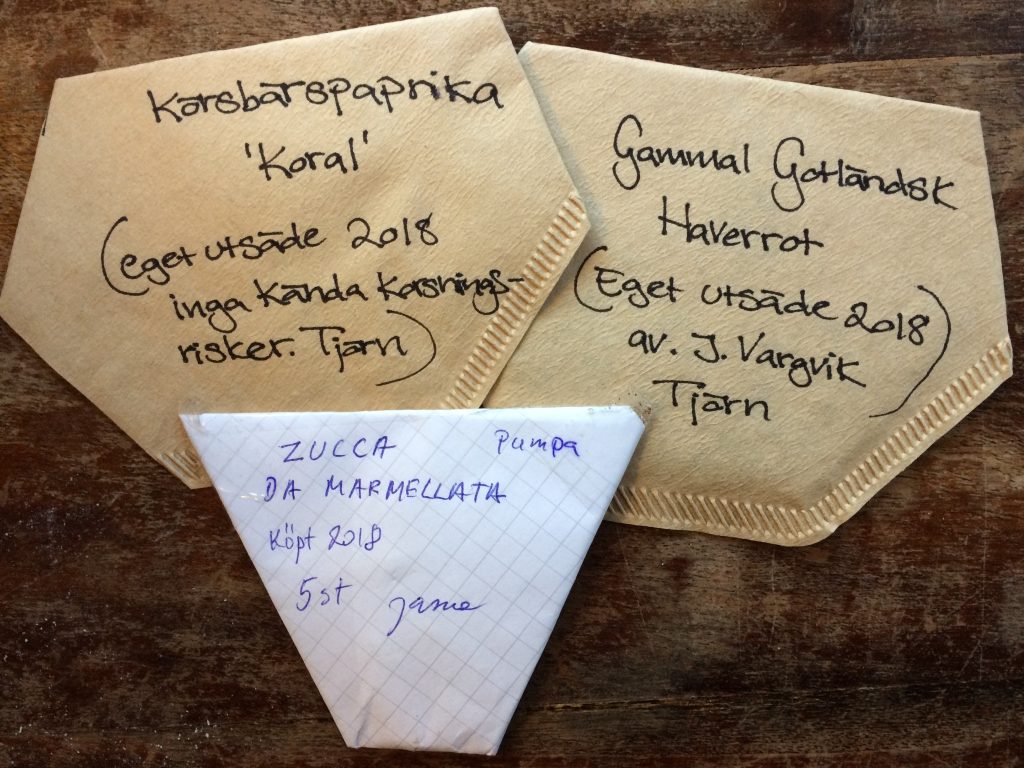 Körsbärspaprika
'Koral'
(eget utsäde 2018
inga kända korsnings-
risker. Tjärn)
Gammal Gotländsk
Haverrot
(Eget utsäde 2018)
av. J. Vargvik
Tjärn
ZUCCA Pumpa
DA MARMELLATA
Köpt 2018
5st